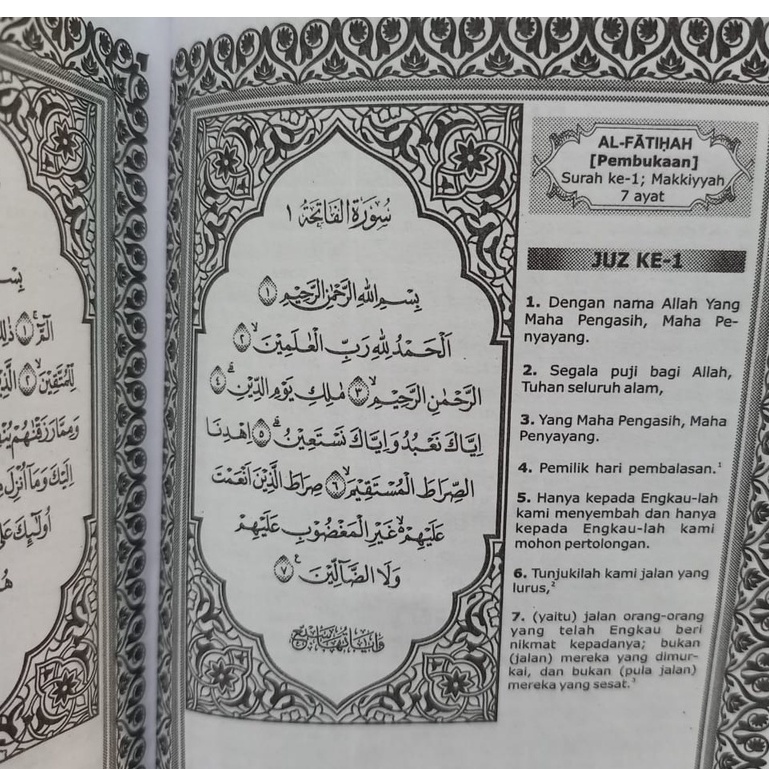 سُورَةُ الْفَاتِحَةِ ١
بِسْمِ اللّٰهِ الرَّحْمٰنِ الرَّحِيْمِ ١
اَلْحَمْدُ لِلّٰهِ رَبِّ الْعٰلَمِيْنَۙ ٢
الرَّحْمٰنِ الرَّحِيْمِۙ ٣ مٰلِكِ يَوْمِ الدِّيْنِۗ ٤
اِيَّاكَ نَعْبُدُ وَاِيَّاكَ نَسْتَعِيْنُۗ ٥ اِهْدِنَا
الصِّرَاطَ الْمُسْتَقِيْمَۙ ٦ صِرَاطَ الَّذِيْنَ اَنْعَمْتَ
عَلَيْهِمْ ەۙ غَيْرِ الْمَغْضُوْبِ عَلَيْهِمْ
وَلَا الضَّاۤلِّيْنَ ࣖ ٧
AL-FĀTIḤAH
[Pembukaan]
Surah ke-1; Makkiyyah
7 ayat
JUZ KE-1
1. Dengan nama Allah Yang
Maha Pengasih, Maha Pe-
nyayang.
2. Segala puji bagi Allah,
Tuhan seluruh alam,
3. Yang Maha Pengasih, Maha
Penyayang.
4. Pemilik hari pembalasan.¹
5. Hanya kepada Engkau-lah
kami menyembah dan hanya
kepada Engkau-lah kami
mohon pertolongan.
6. Tunjukilah kami jalan yang
lurus,²
7. (yaitu) jalan orang-orang
yang telah Engkau beri
nikmat kepadanya; bukan
(jalan) mereka yang dimur-
kai, dan bukan (pula jalan)
mereka yang sesat.³
الۤمّۤ ۚ ١ ذٰلِكَ
لِّلْمُتَّقِيْنَۙ ٢
وَمِمَّا رَزَقْنٰهُمْ
اِلَيْكَ وَمَآ اُنْزِلَ
اُولٰۤىِٕكَ